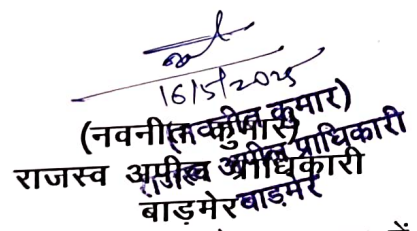 16/5/2025
(नवनीत कुमार)
राजस्व अपील प्राधिकारी
बाड़मेर
(नवनीत कुमार)
राजस्व अपील प्राधिकारी
बाड़मेर